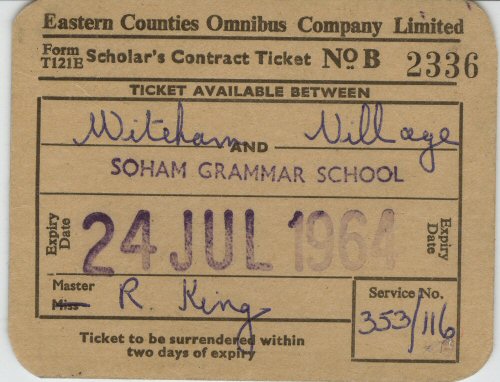 Eastern Counties Omnibus Company Limited
Form T121E Scholar's Contract Ticket No B 2336
TICKET AVAILABLE BETWEEN
Witcham AND Village
SOHAM GRAMMAR SCHOOL
Expiry Date 24 JUL 1964 Expiry Date
Master
Miss R. King
Service No.
353/116
Ticket to be surrendered within
two days of expiry